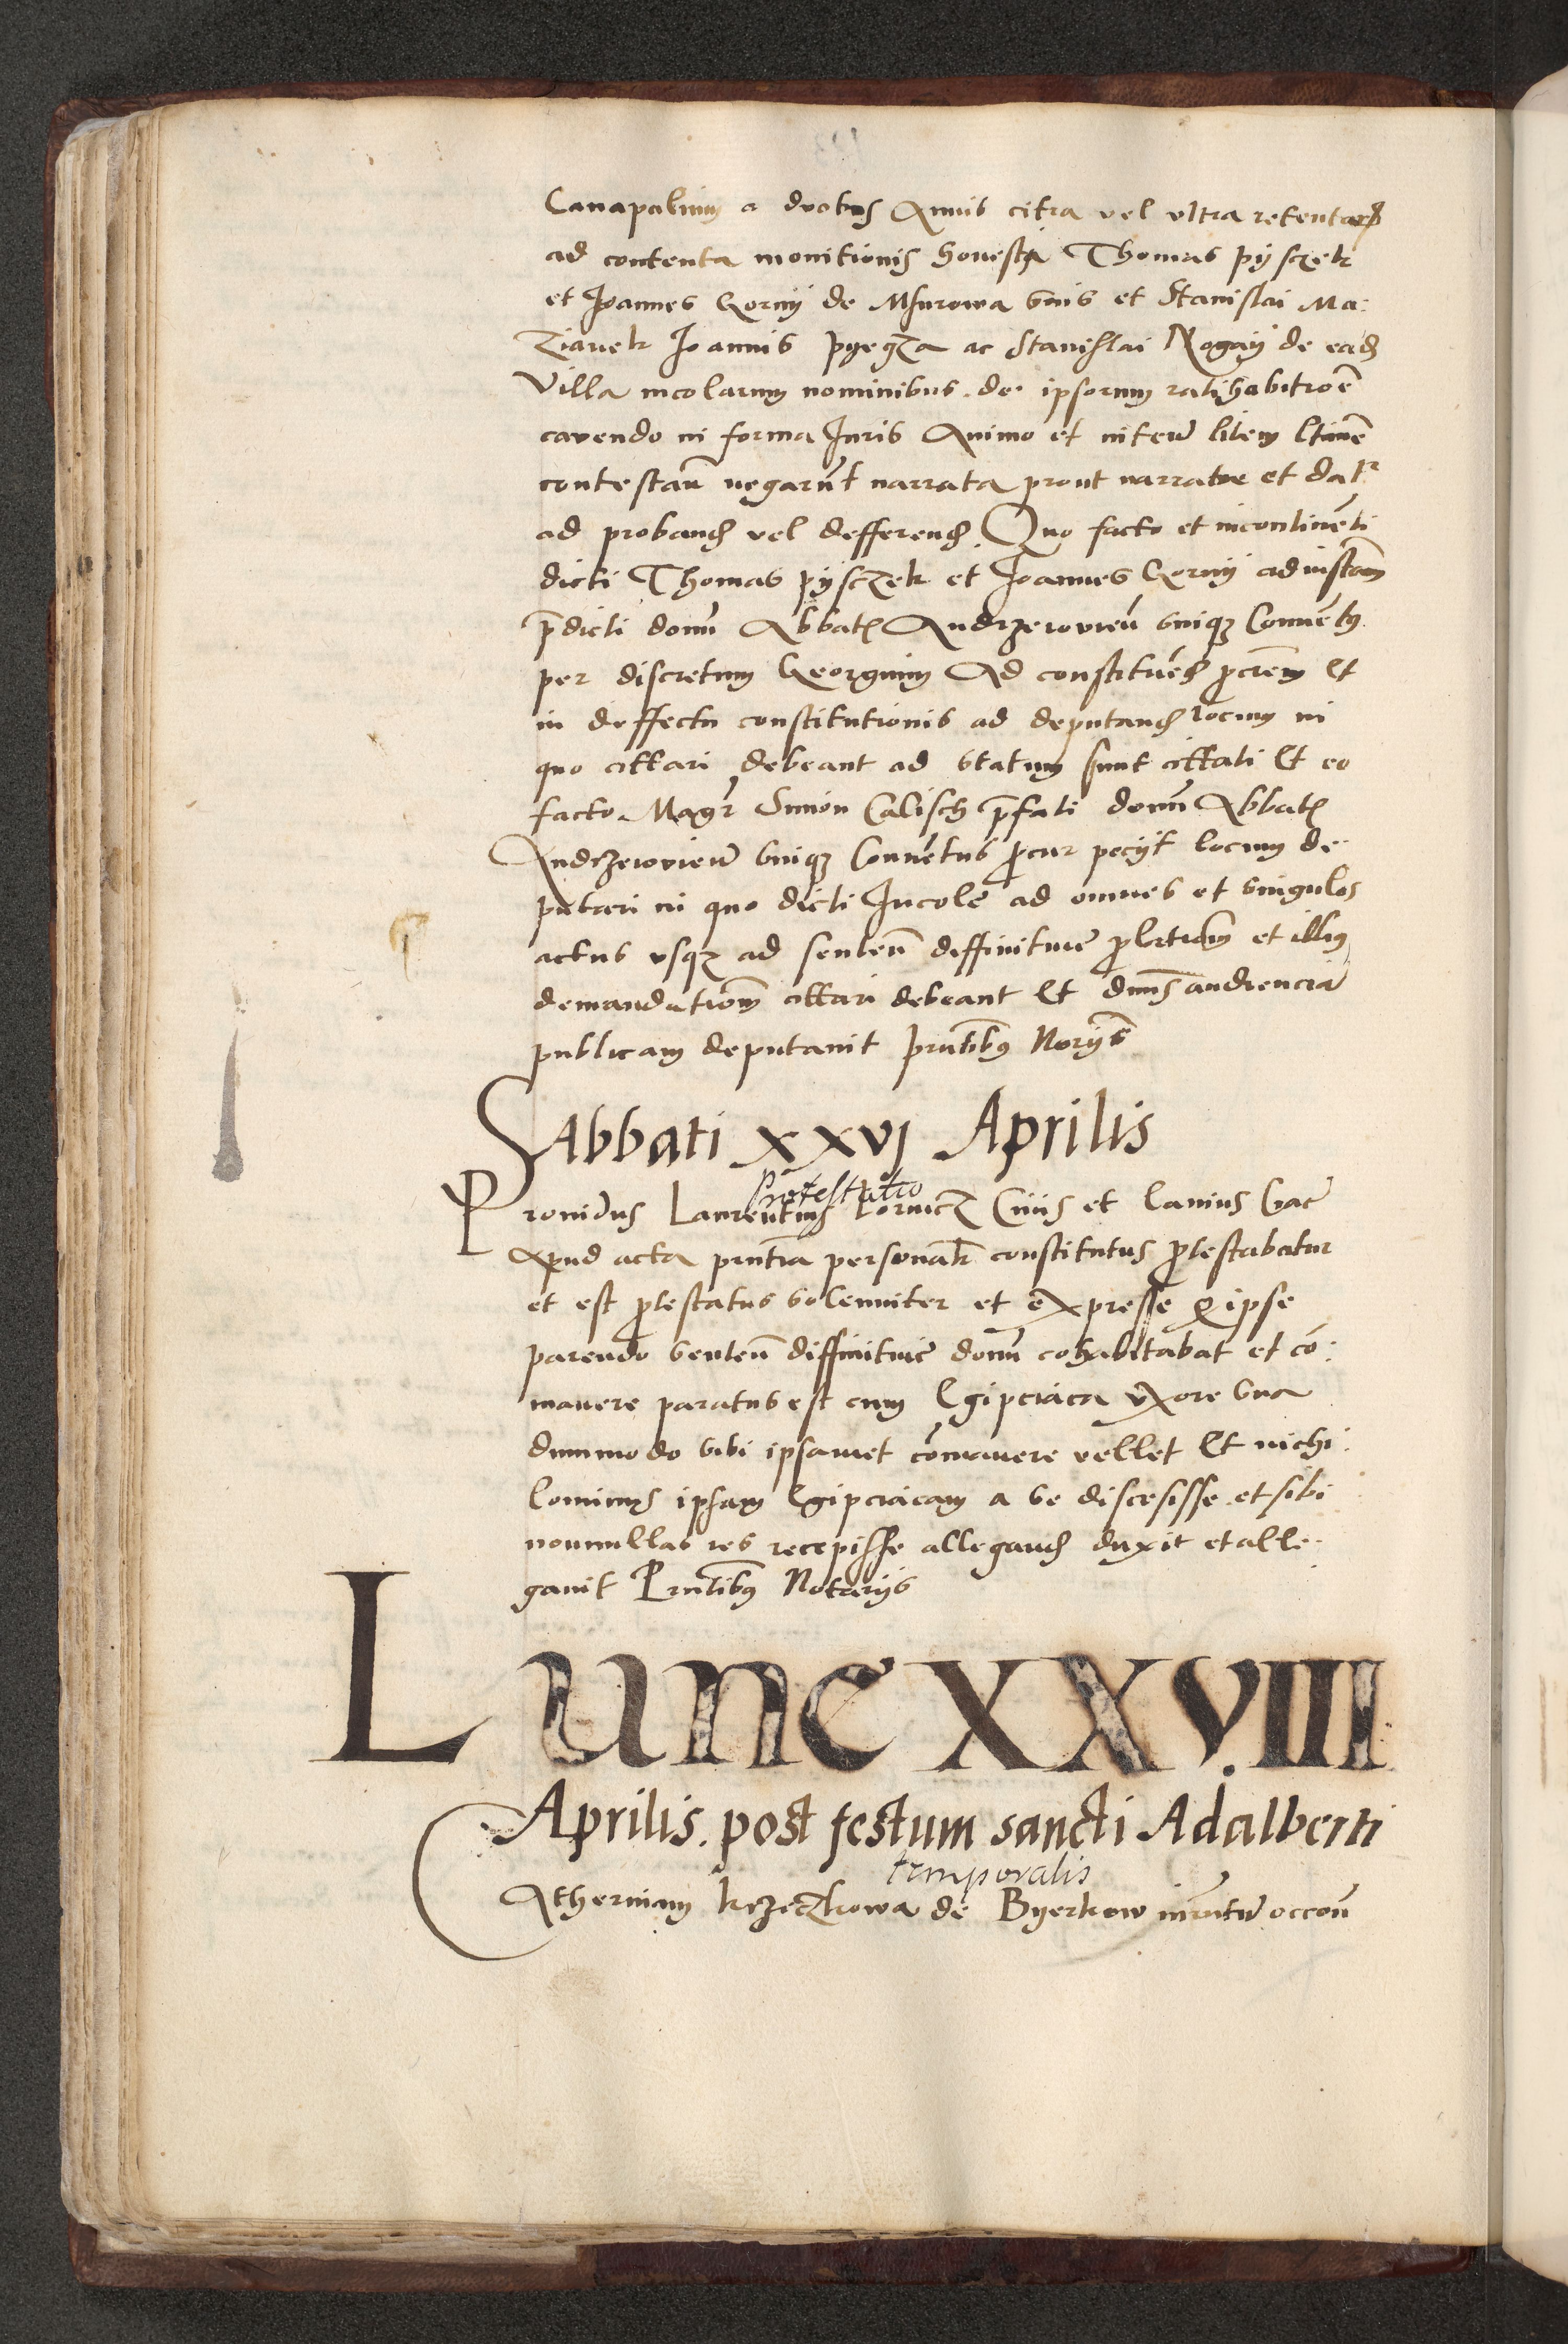 Canapalium a duobus Annis citra vel ultra retentarum
ad contenta monitionis honesti Thomas pysczek
et Joannes Gorny de Msurowa suis et Stanislai Ma:
Joannis pyegza ac Stanislai Nogay de eadem
Villa incolarum nominibus de ipsorum ratihabitione
cavendo in forma Juris Animo et litem
contestan negarunt narrata prout narrantur et datur
ad proband vel defferend Quo facto et incontinenti
dicti Thomas pysczek et Joannes Gorny ad instam
pdicti domi Abbatis Andrzeiovien suiq3 Conventus
per discretum Georgium Ad constituend pcrem Et
in deffectu constitutionis ad deputand locum in
quo cittari debeant ad statum sunt cittati Et eo
facto Magr Simon Calisch pfati domi Abbatis
Andrzeiovien suiq3 Conventus pcur peciit locum de
putari in quo dicti Incole ad omnes et singulos
actus usq3 ad senten diffinitiue plationem et illius
demandationem cittari debeant Et dnus audiencia
publicam deputavit pntibus Noriis
Sabbati xxvj Aprilis
Protestatio
Providus Laurentius Civis et lanius Crac
Apud acta pntia personalr constitutus ptestabatur
et est ptestatus solenniter et expresse q ipse
parendo senten diffinitiue domi cohabitabat et co:
manere paratus est cum Egipciaca uxore sua
dummodo sibi ipsamet comanere vellet Et nichi:
lominus ipsam Egipciacam a se discesisse et sibi
nonnullas res recepisse allegand duxit et alle:
gavit Pntibus Notariis
Lune XXVIII
Aprilis. post festum sancti Adalberti
temporalis
Catherinam krzeczkowa de Byerkow occon